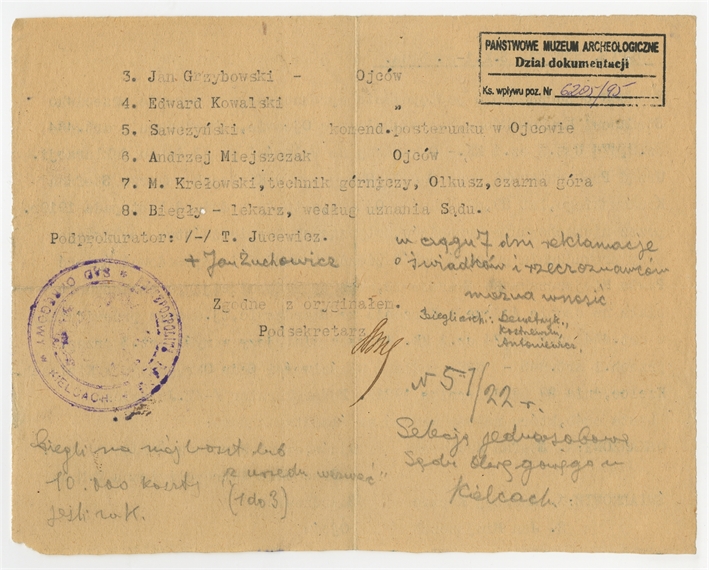 PAŃSTWOWE MUZEUM ARCHEOLOGICZNE
Dział dokumentacji
Ks. wpływu poz. Nr 6205/95
3. Jan Grzybowski - Ojców
4. Edward Kowalski „
5. Sawczyński. komend.posterunku w Ojcowie
6. Andrzej Miejszczak Ojców
7. M. Krełowski,technik górniczy, Olkusz,czarna góra
8. Biegły - lekarz, według uznania Sądu.
Podprokurator: /-/ T. Jucewicz.
+ Jan Żuchowicz
w ciągu 7 dni reklamacje
o świadków i rzeczoznawców
można wnosić
Biegli arch.: Demetryk.,
Kostrzewski,
Antoniewicz,
Zgodne z oryginałem.
Podsekretarz
SĄD OKRĘGOWY w KIELCACH
N 57/22 r.
Sekcja jednoosobowa
Sądu Okręgowego w
Kielcach
Biegli na mój koszt lub
10.000 koszty „z urzędu wezwać"
(1 do 3)
jeśli